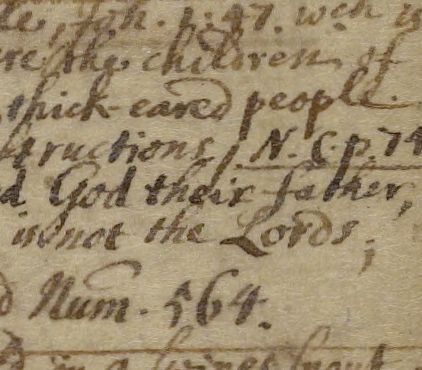 Joh. 8. 47. wch is
the children of
thick-eared people.
structions, N. C. p. 74
God their father,
is not the Lords;
Num. 564.
in a